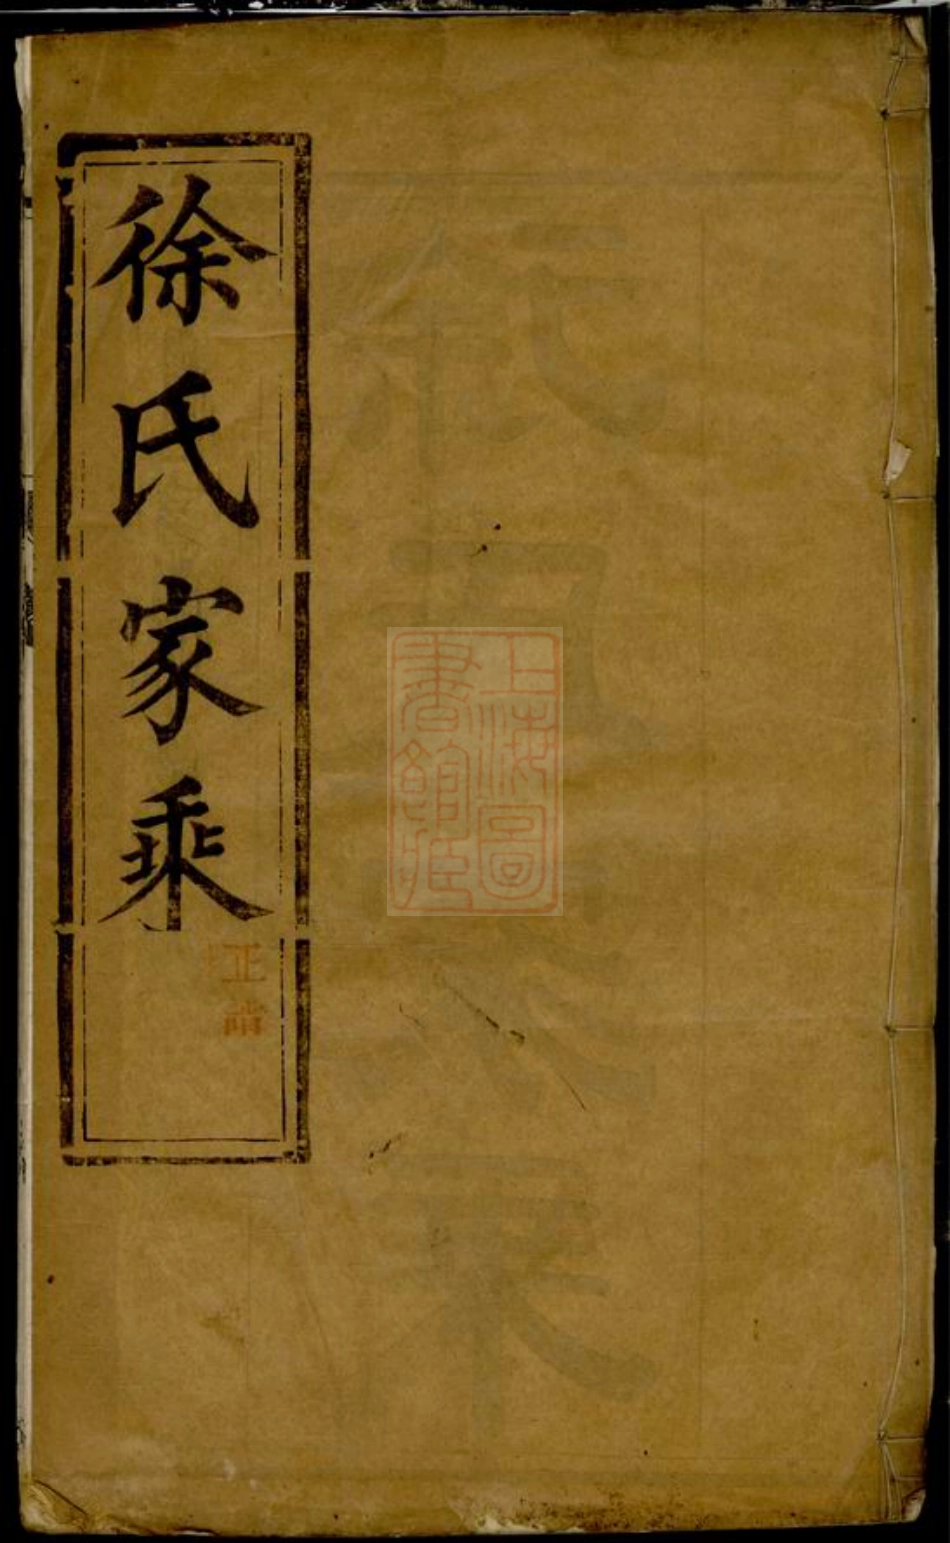 徐氏家乘
上海圖
書館藏